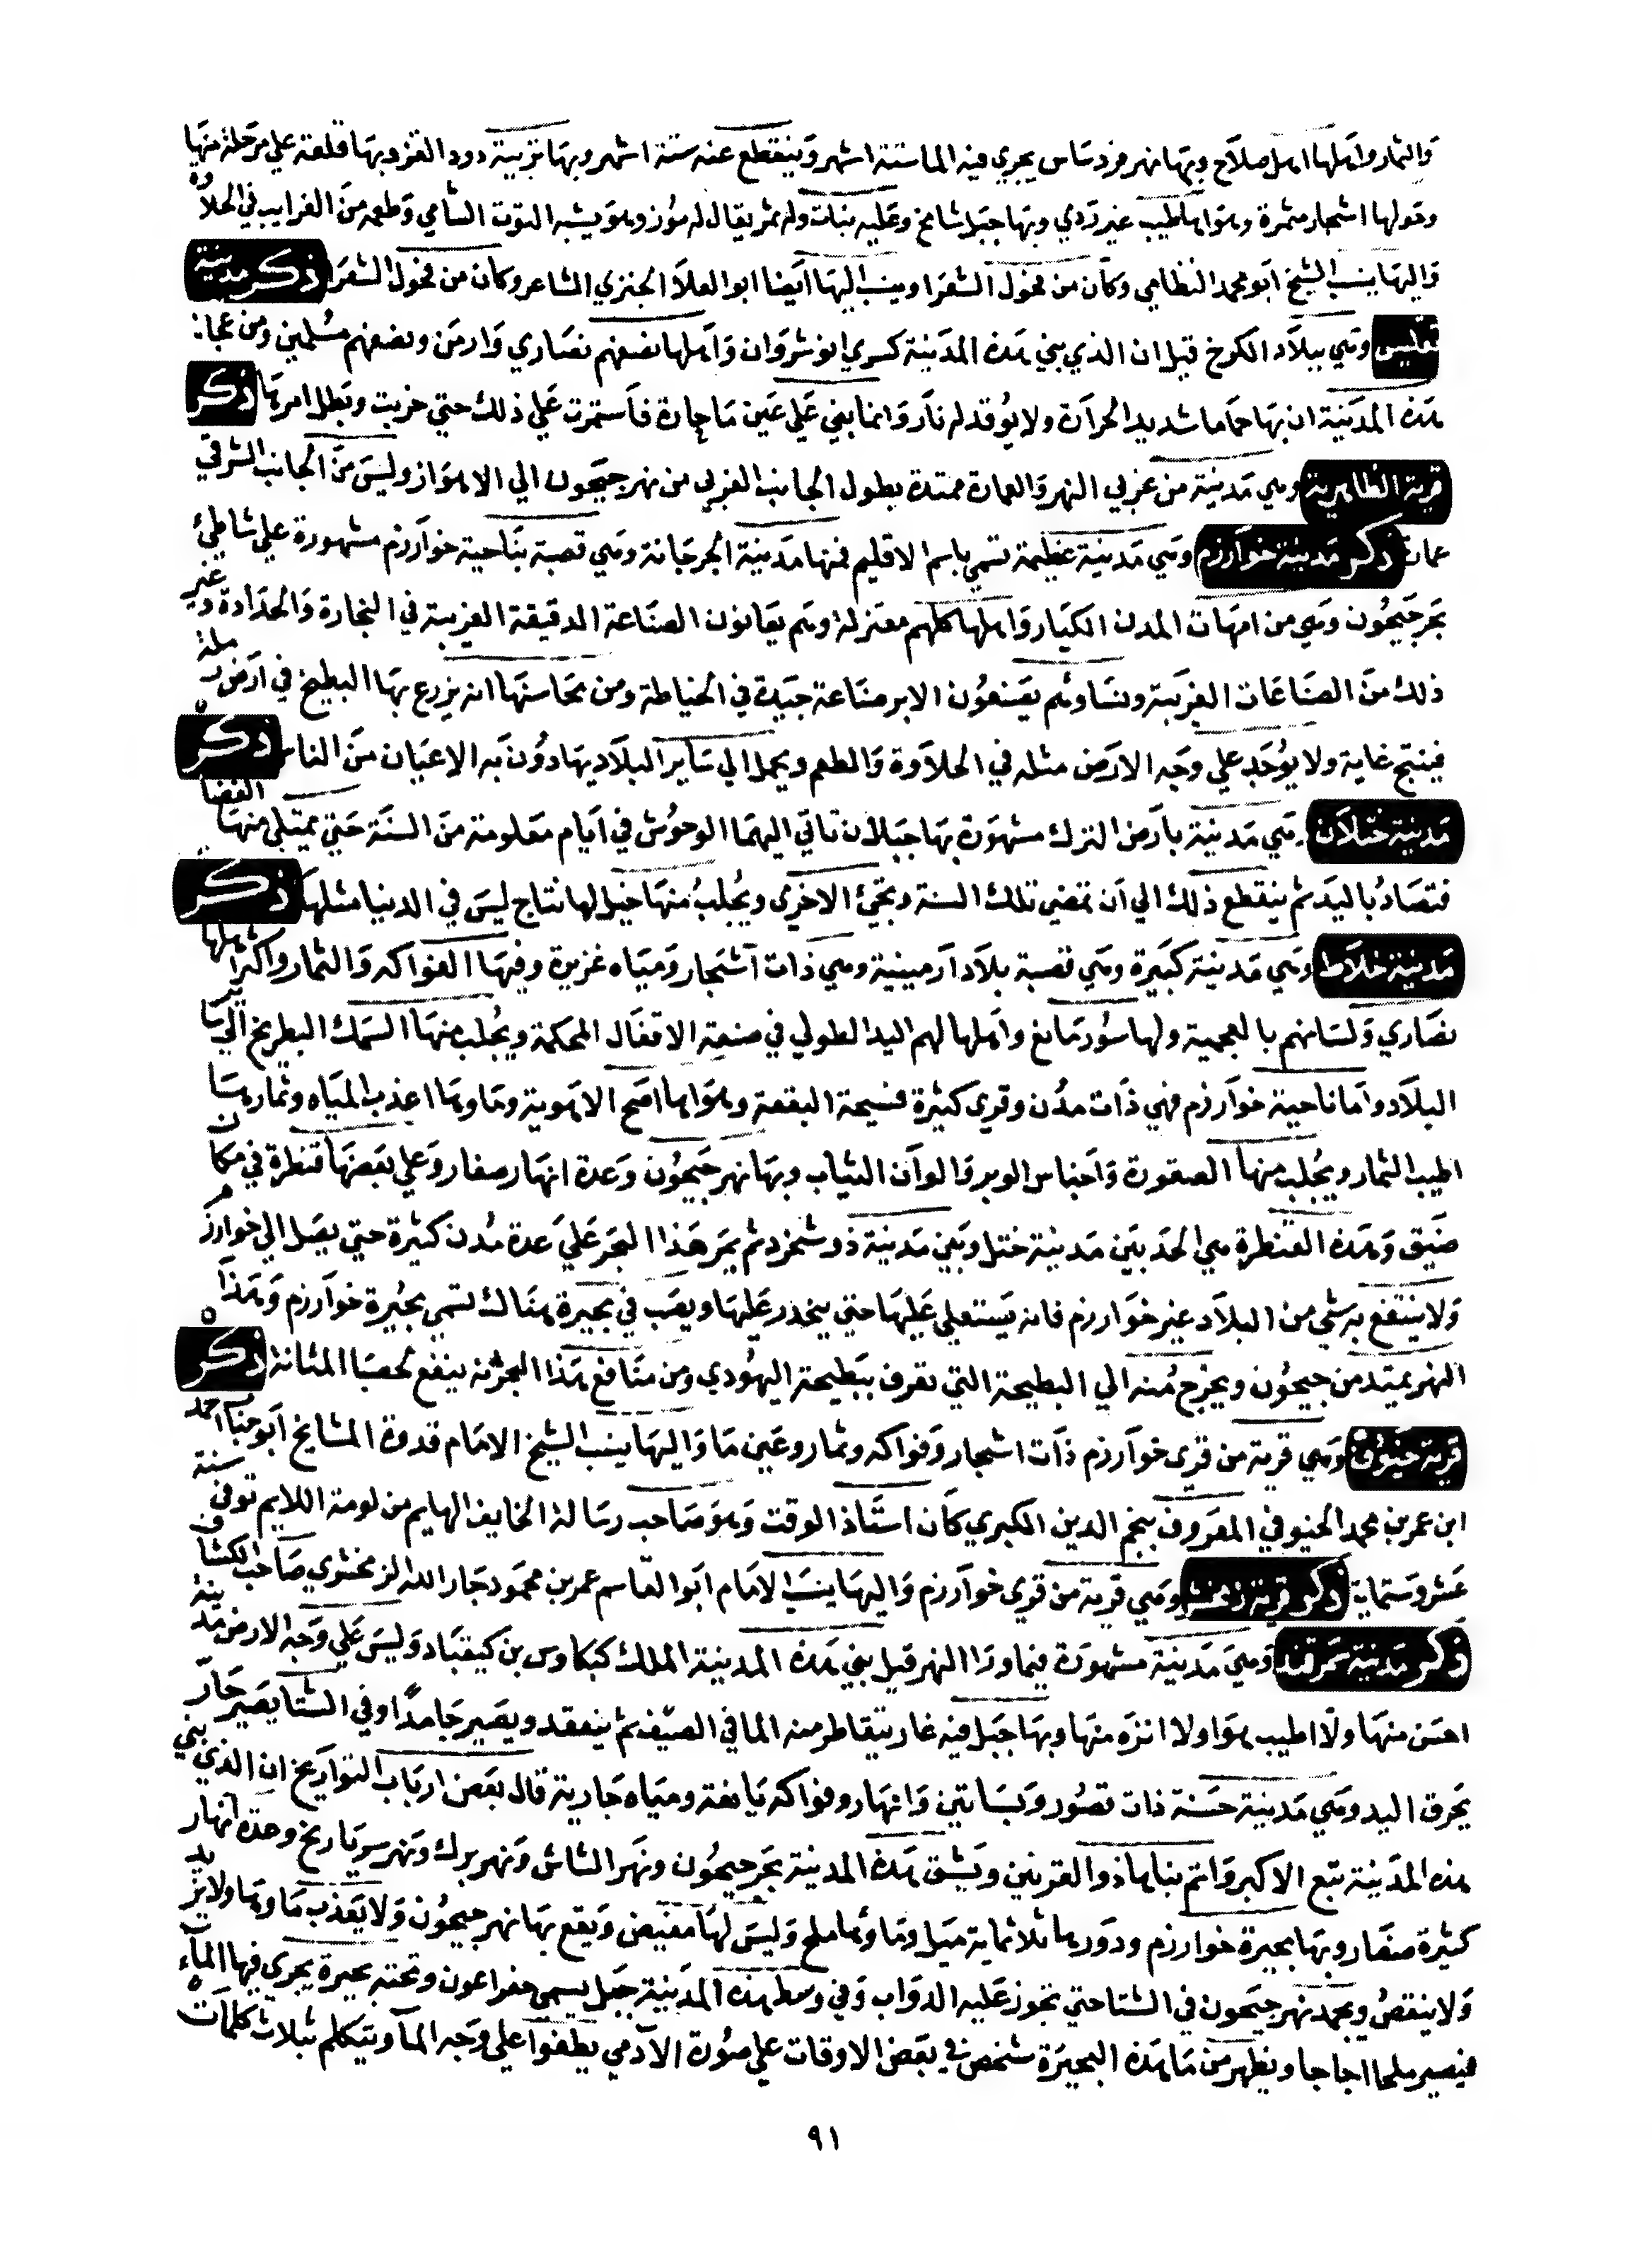 والثمار واهلها اهل صلاح وبها نهر فردساس يجري فيه الما ستة اشهر وينقطع عنه ستة اشهر وبها تربية دود القز وبها قلعة علي مرحلة منها
وحولها اشجار مثمرة وهواها طيب غير ردي وبها جبل شامخ وعليه نبات وله ثمر يقال له موز وهو يشبه التوت الشامي وطعمه من الغرايب في الحلاوة
واليها ينسب الشيخ ابو محمد النظامي وكان من فحول الشعرا وينسب اليها ايضا ابو العلا الجنزي الشاعر وكان من فحول الشعرا ذكر مدينة
تفليس وهي ببلاد الكرخ قيل ان الذي بني هذه المدينة كسري انوشروان واهلها نصفهم نصاري وارمن ونصفهم مسلمين ومن عجاـ:
هذه المدينة ان بها حماما شديد الحرارة ولا يوقد له نار وانما بني علي عين ما حارة فاستمرت علي ذلك حتي خربت وبطل امرها ذكر
قرية الظاهرية وهي مدينة من غربي النهر والعمارة ممتدة بطول الجانب الغربي من نهر جيحون الي الاهواز وليس من الجانب الشرقي
عمارة ذكر مدينة خوارزم وهي مدينة عظيمة تسمي باسم الاقليم فمنها مدينة الجرجانة وهي قصبة بناحية خوارزم مشهورة علي شاطئ
بحر جيحون وهي من امهات المدن الكبار واهلها كلهم معتزلة وهم يعانون الصناعة الدقيقة الغريبة في النجارة والحدادة وغير
ذلك من الصناعات الغريبة ونساوهم يصنعون الابر صناعة جيدة في الخياطة ومن محاسنها انه يزرع بها البطيخ في ارض رملة
فينتج غاية ولا يوجد علي وجه الارض مثله في الحلاوة والطعم ويحمل الي ساير البلاد يهادون به الاعيان من الناس ذكر
مدينة ختلان هي مدينة بارض الترك مشهورة بها جبلان تاتي اليهما الوحوش في ايام معلومة من السنة حتي يمتلي منها الفضا
فتصاد باليد ثم ينقطع ذلك الي ان تمضي تلك السنة وتجئ الاخري ويجلب منها خيل لها نتاج ليس في الدنيا مثلها ذكر
مدينة خلاط وهي مدينة كبيرة وهي قصبة بلاد ارمينية وهي ذات اشجار ومياه غزيرة وفيها الفواكه والثمار واكثر اهلها
نصاري ولسانهم بالعجمية ولها سور مانع واهلها لهم اليد الطولي في صنعة الاقفال المحكمة ويجلب منها السمك البطريخ الي ساير
البلاد واما ناحية خوارزم فهي ذات مدن وقري كثيرة فسيحة البقعة وهواها اصح الاهوية وماوها اعذب المياه وثمارها
اطيب الثمار ويجلب منها الصقورة واجناس الوبر والوان الثياب وبها نهر جيحون وعدة انهار صغار وعلي بعضها قنطرة في مكان
ضيق وهذه القنطرة هي الحد بين مدينة ختل وبين مدينة ذوشخرد ثم يمر هذا البحر علي عدة مدن كثيرة حتي يصل الي خوارزم
ولا ينتفع به شي من البلاد غير خوارزم فانه يستعلي عليها حتي ينحدر عليها ويصب في بحيرة هناك تسمي بحيرة خوارزم وهذا
النهر يمتد من جيحون ويخرج منه الي البطيحة التي تعرف ببطيحة اليهودي ومن منافع هذا البحر انه ينفع لحصا المثانة ذكر
قرية خيوق وهي قرية من قري خوارزم ذات اشجار وفواكه وثمار وعين ما واليها ينسب الشيخ الامام قدوة المشايخ ابو جناب احمد
ابن عمر بن محمد الخيوقي المعروف بنجم الدين الكبري كان استاذ الوقت وهو صاحب رسالة الخايف الهايم من لومة اللايم توفي سنة
عشر وستماية ذكر قرية زمخشر وهي قرية من قري خوارزم واليها ينسب الامام ابو القاسم عمر بن محمود جار الله الزمخشري صاحب الكشاف
ذكر مدينة سمرقند وهي مدينة مشهورة فيما ورا النهر قيل بني هذه المدينة الملك كيكاوس بن كيقباد وليس علي وجه الارض مدينة
احسن منها ولا اطيب هوا ولا انزه منها وبها جبل فيه غار يتقاطر منه الما في الصيف ثم ينعقد ويصير جامدا وفي الشتا يصير حار
يحرق اليد وهي مدينة حسنة ذات قصور وبساتين وانهار وفواكه يانعة ومياه جارية قال بعض ارباب التواريخ ان الذي بني
هذه المدينة تبع الاكبر واتم بناها ذو القرنين ويشق هذه المدينة بحر جيحون ونهر الشاش ونهر برك ونهر سوياريخ وعدة انهار
كثيرة صغار وبها بحيرة خوارزم ودورها ثلاثماية ميل وماوها ملح وليس لها مغيض ويقع بها نهر جيحون ولا يعذب ماوها ولا يزيد
ولا ينقص ويجمد نهر جيحون في الشتا حتي تجوز عليه الدواب وفي وسط هذه المدينة جبل يسمي جفراعون وتحته بحيرة يجري فيها الماء
فيصير ملحا اجاجا ويظهر من ما هذه البحيرة شخص في بعض الاوقات علي صورة الآدمي يطفوا علي وجه الما ويتكلم بثلاث كلمات
٩١